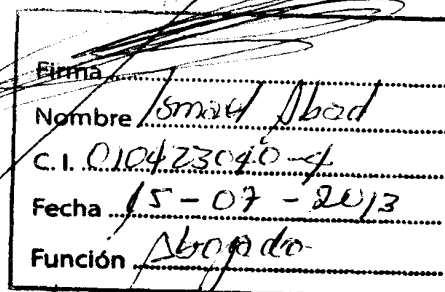 Firma
Nombre Ismael Abad
C. I. 010423040-4
Fecha 15 - 07 - 2013
Función Abogado